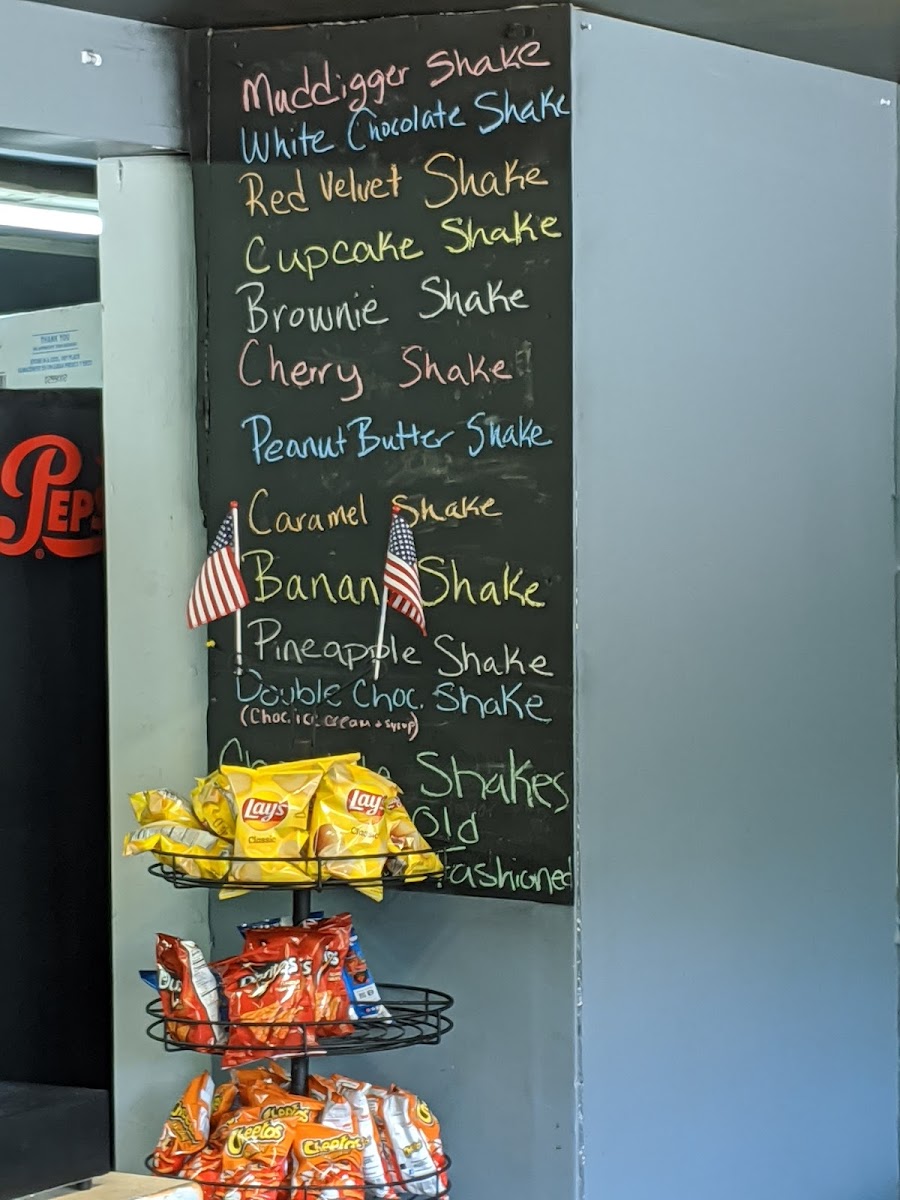 Muddigger Shake
White Chocolate Shake
Red Velvet Shake
Cupcake Shake
Brownie Shake
Cherry Shake
Peanut Butter Shake
Caramel Shake
Banan Shake
Pineapple Shake
Double Choc. Shake
(Choc. ice cream + syrup)
Shakes
Old
Fashioned
THANK YOU
PEPS
Lay's
Classic
Lay's
Classic
Doritos
Cheetos
Cheetos